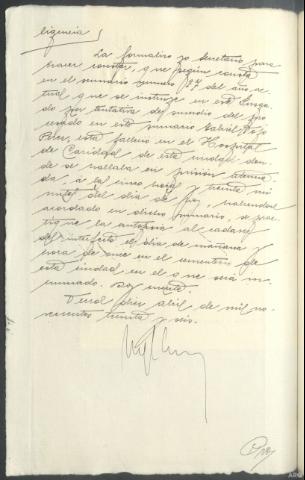 ligencia }
La formativo yo Secretario, para
hacer constar, que según consta
en el sumario número 87 del año ac-
tual que se instruye en este Juzga-
do por tentativa de suicidio del pro
cesado en este sumario Gabriel
Pérez, este falleció en el Hospital
de Caridad de esta ciudad don-
de se hallaba en prisión atenua-
da, a las cinco horas y treinta mi
nutos del día de hoy, habiendo
acordado en dicho sumario, se prac-
tique la autopsia al cadaver
del interfecto el día de mañana y
hora de once en el cementerio de
esta ciudad en el que será in-
humado. Doy cuenta.
diez abril de mil no-
vecientos treinta y seis.